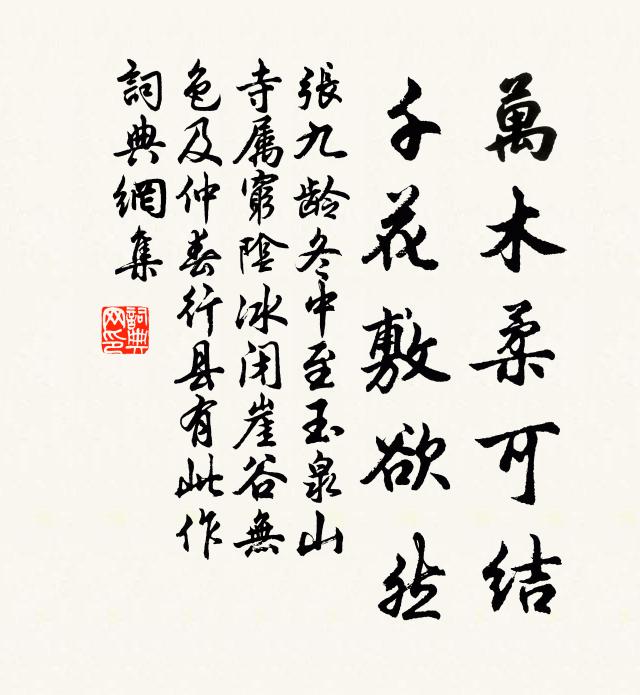 萬木柔可結
千花敷欲然
張九齡冬中至玉泉山
寺属窮陰冰闭崖谷無
色及仲春行县有此作
詞典網集
詞典
网印